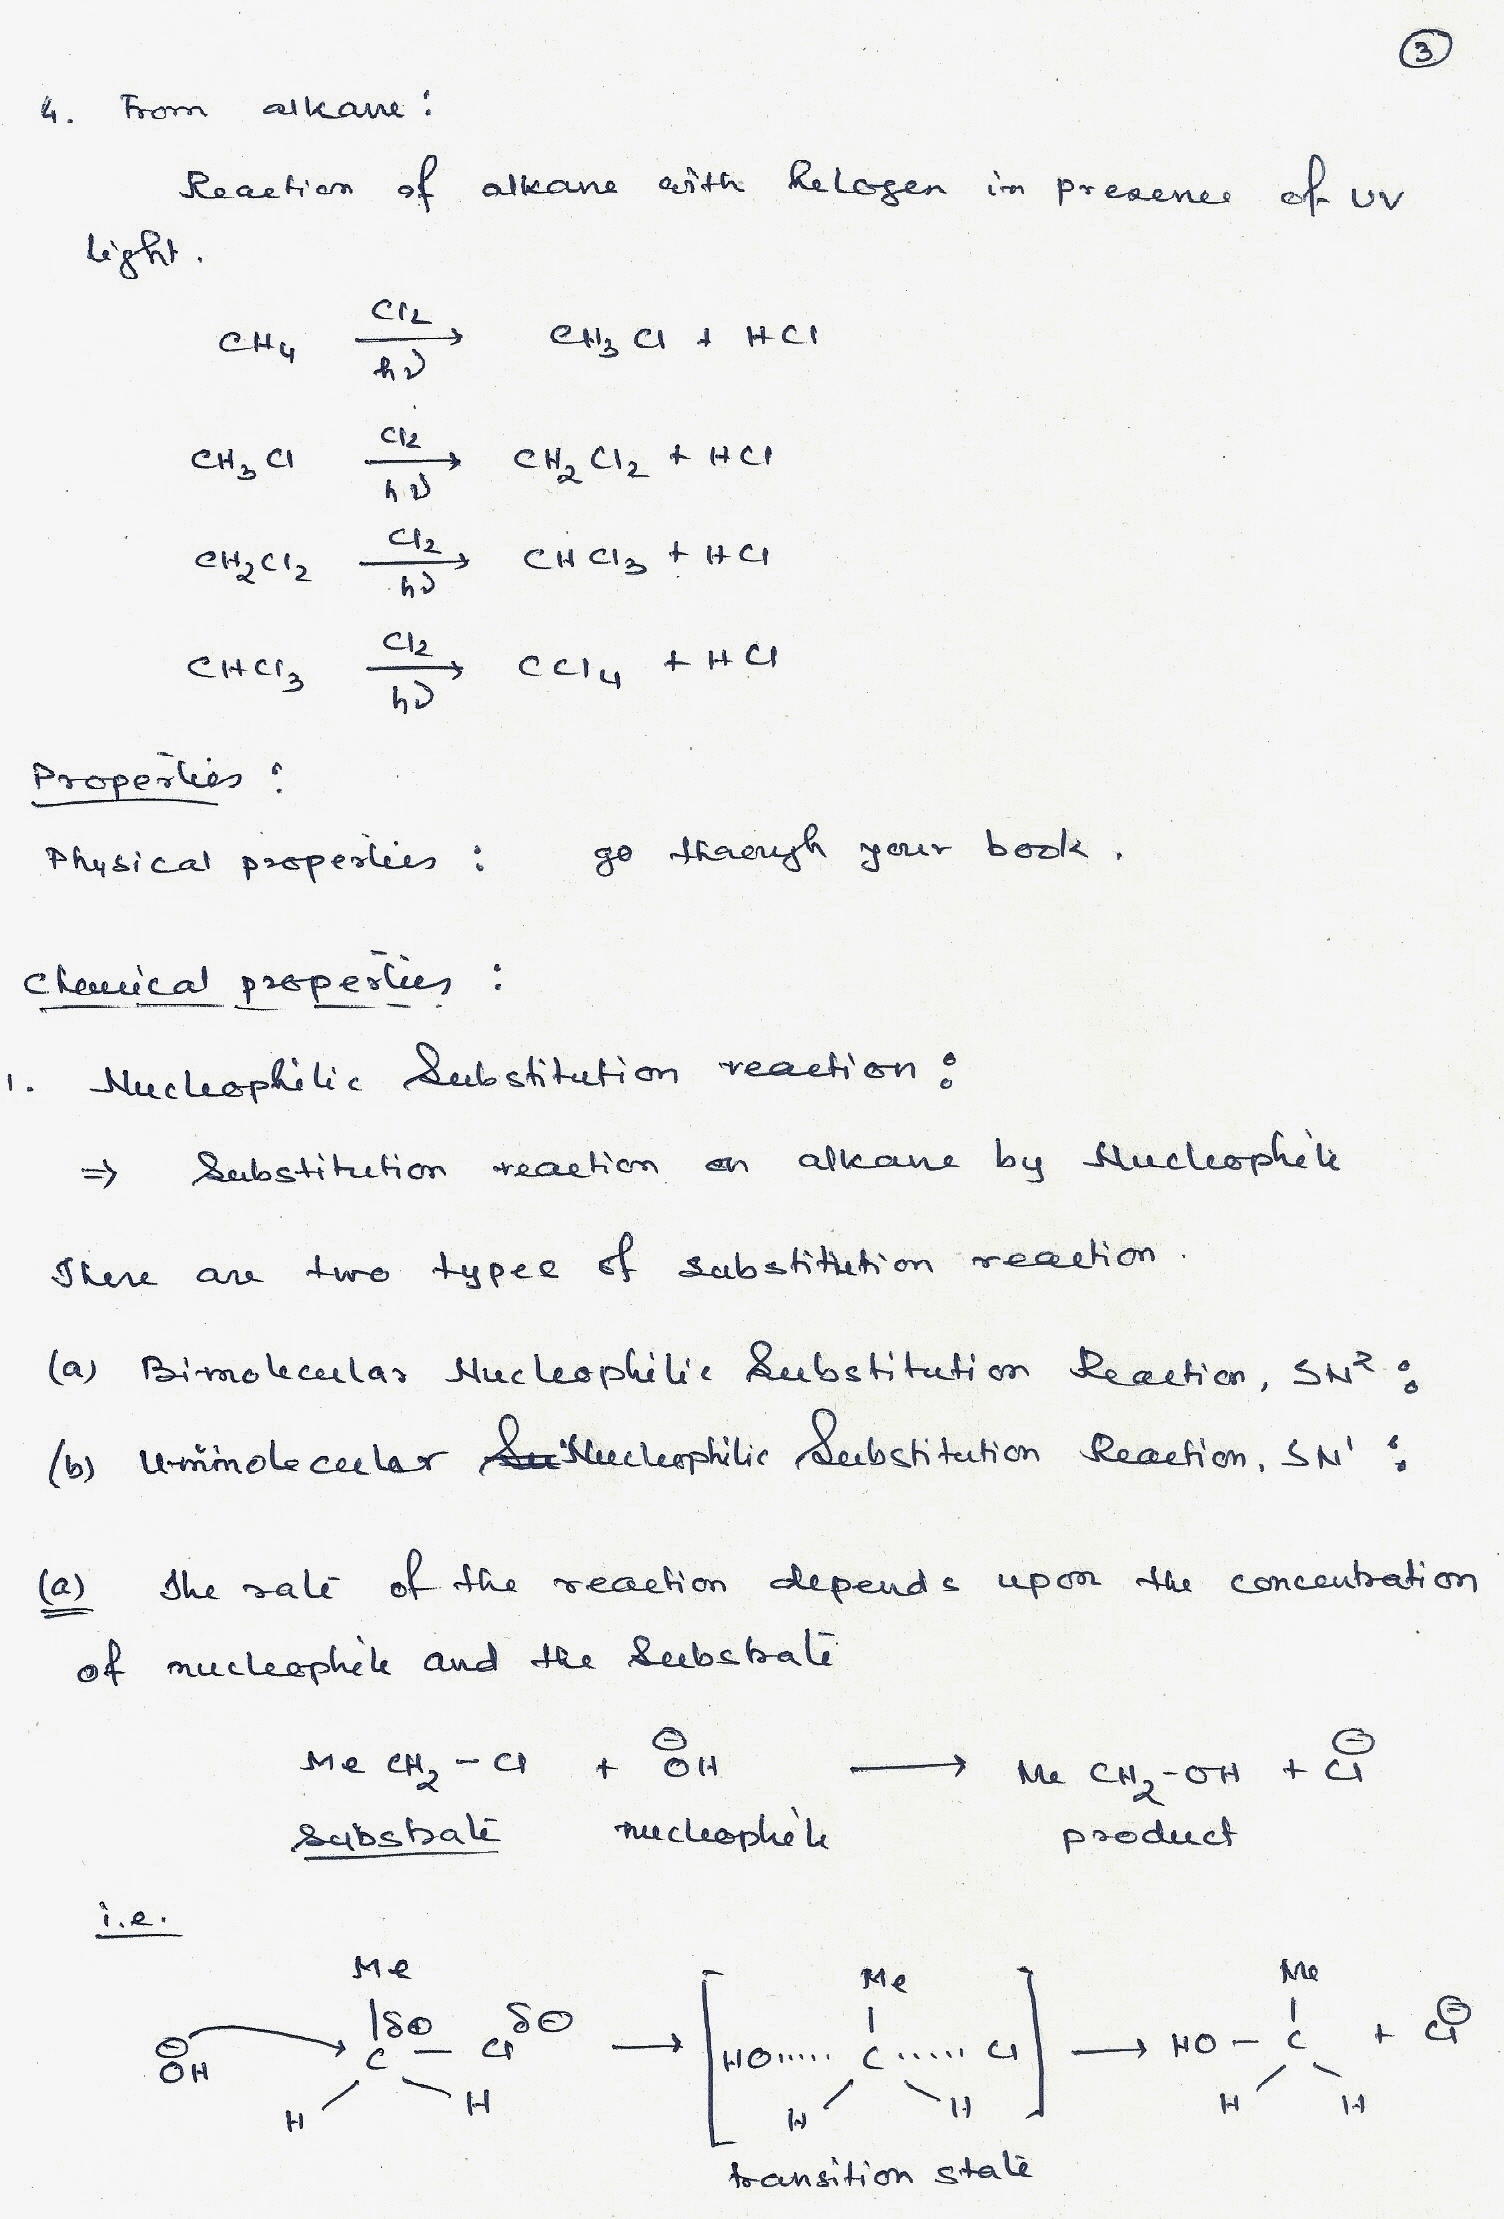 3
4. From alkane:
Reaction of alkane with helogen in presence of UV
light.
CH4 Cl2 hν → CH3Cl + HCl
CH3Cl Cl2 hν → CH2Cl2 + HCl
CH2Cl2 Cl2 hν → CHCl3 + HCl
CHCl3 Cl2 hν → CCl4 + HCl
Properties:
Physical properties: go through your book.
Chemical properties:
1. Nucleophilic Substitution reaction:
⇒ Substitution reaction on alkane by Nucleophile
There are two types of substitution reaction.
(a) Bimolecular Nucleophilic Substitution Reaction, SN²:
(b) Unimolecular Nucleophilic Substitution Reaction, SN¹:
(a) The rate of the reaction depends upon the concentration
of nucleophile and the Substrate
Me CH2 – Cl + ⊖OH → Me CH2-OH + Cl⊖
Substrate nucleophile product
i.e.
Me Me Me
δ⊖
⊖OH C – Cl δ⊖ → [HO..... C ..... Cl] → HO – C + Cl⊖
H H H H H H
transition state